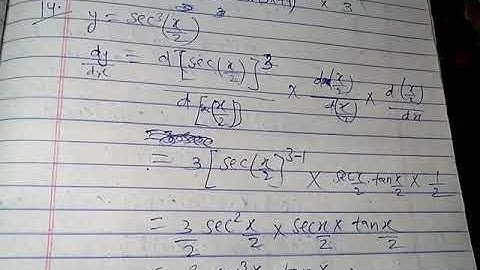 14. y = sec³(x/2)
dy/dx = d[sec(x/2)]³ / d[sec(x/2)] × dsec(x/2) / d(x/2) × d(x/2) / dx
= 3[sec(x/2)]³⁻¹ × sec x/2 . tan x/2 × 1/2
= 3/2 sec² x/2 × sec x/2 × tan x/2